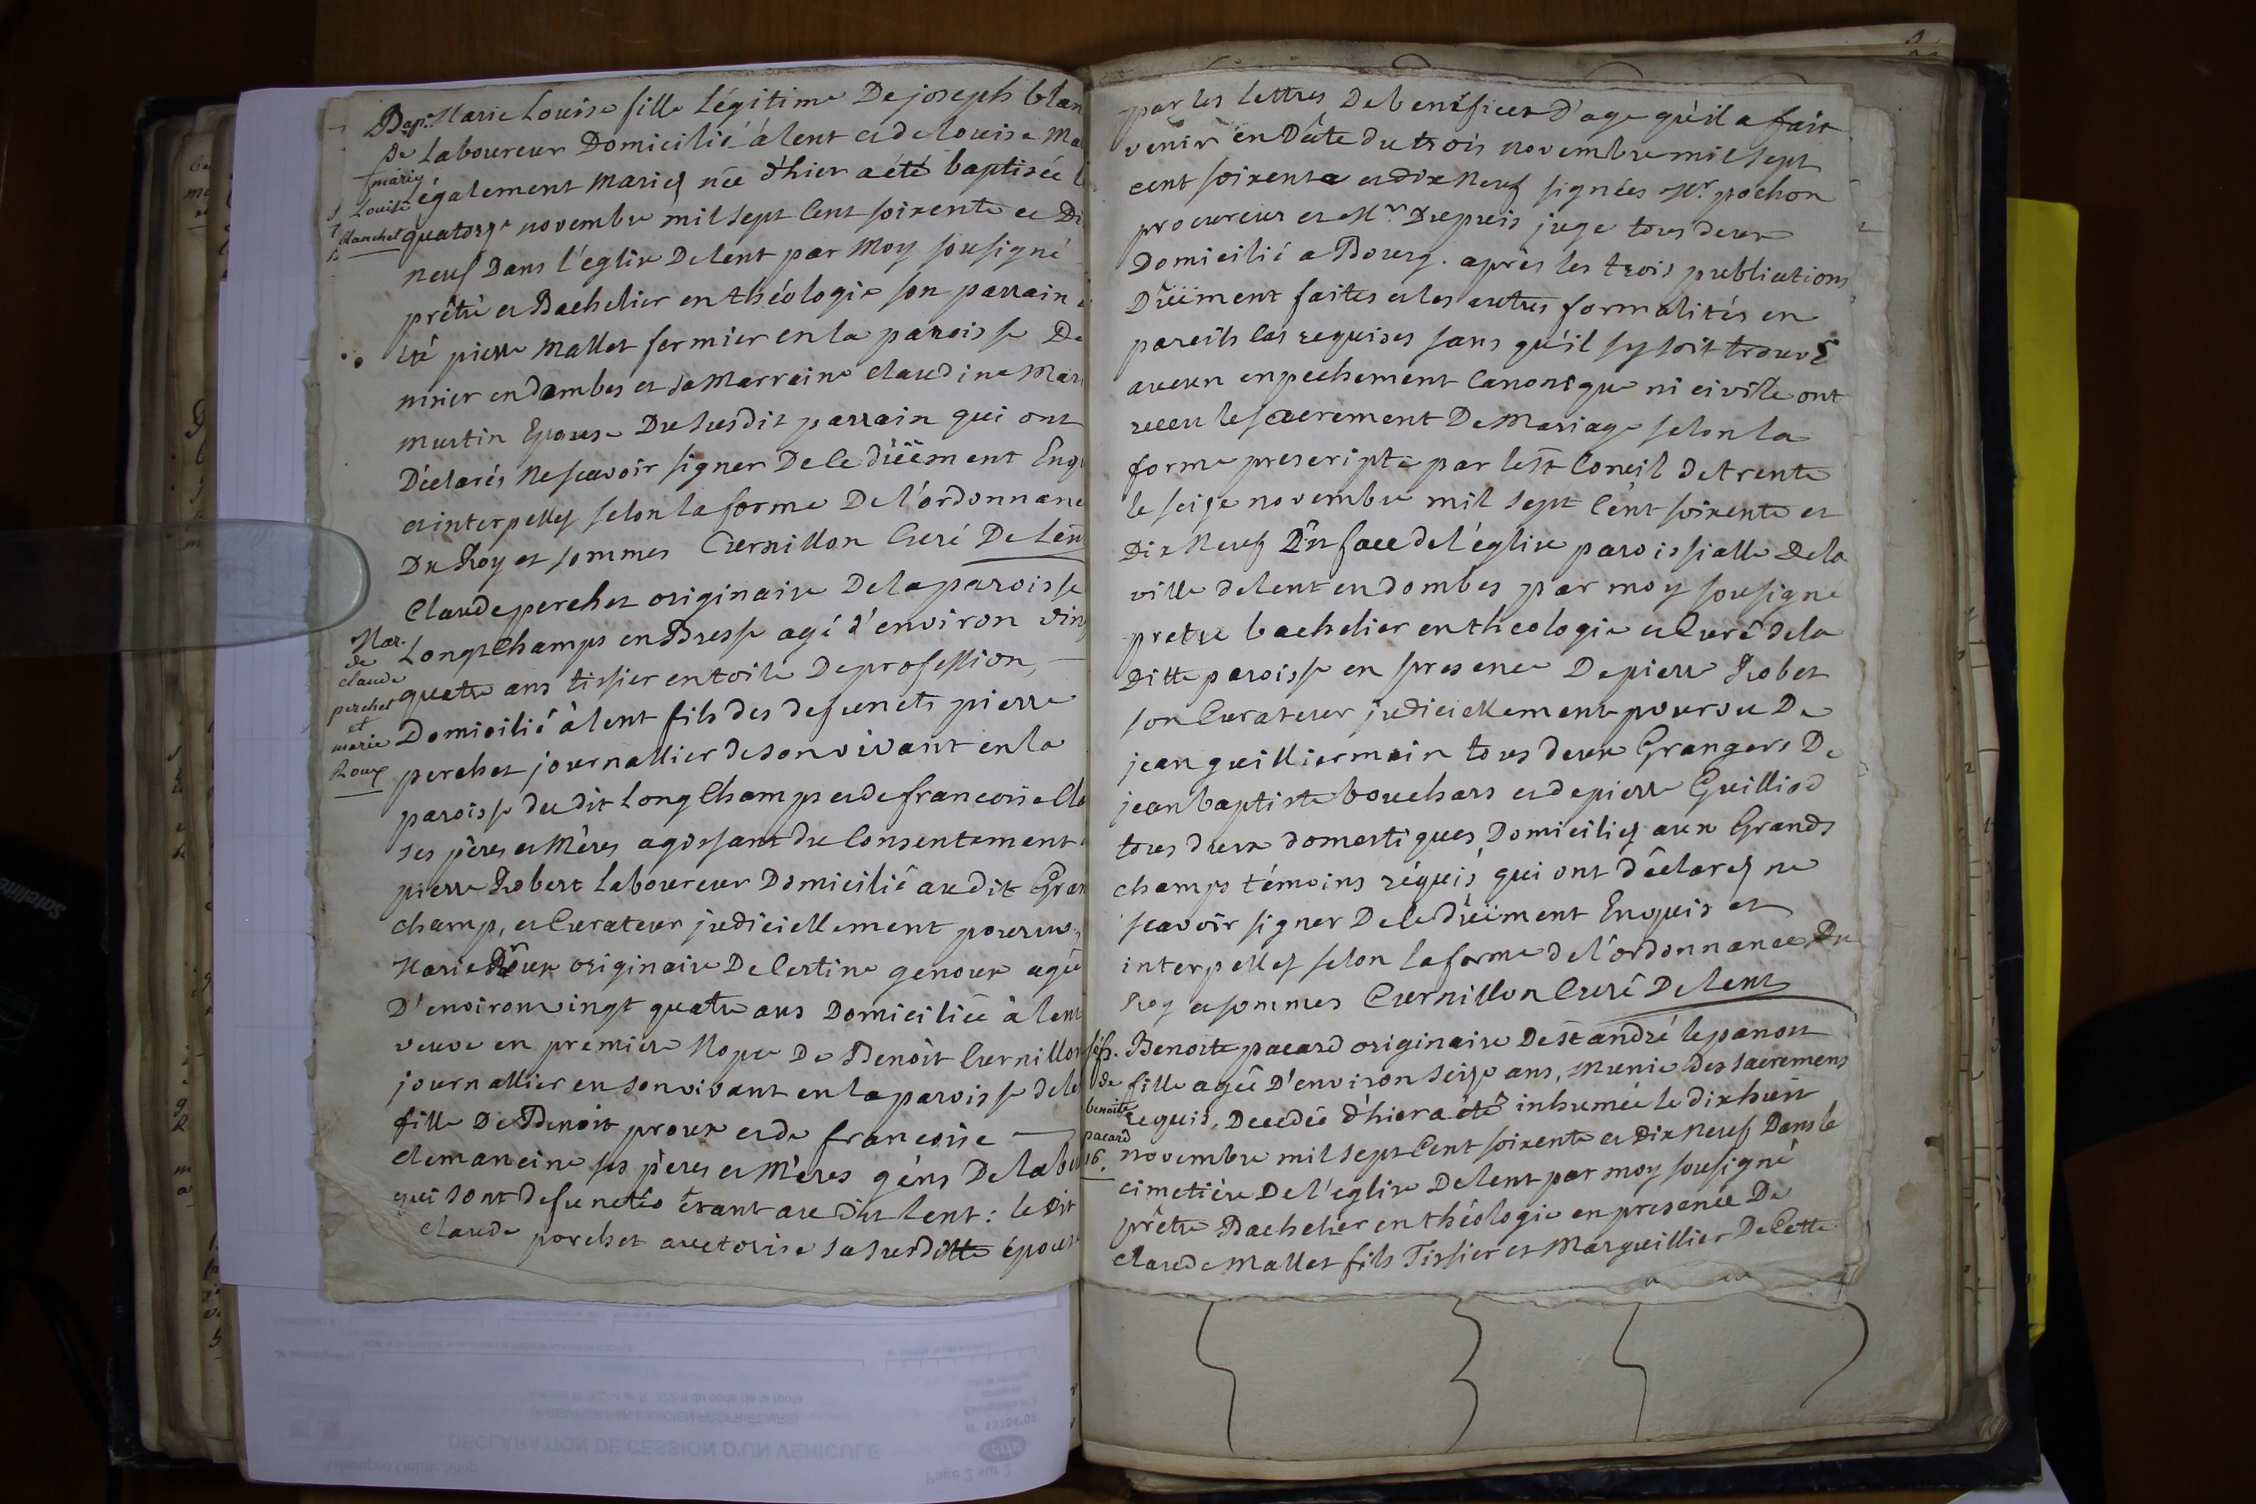 Bap. Marie Louise fille légitime De joseph blan
de Laboureur Domicilié à lent et de louise Ma
marie
Louise également mariés née d'hier a été baptisée
blanchet quatorze novembre mil sept Cent soixente et Di
neuf Dans l'église De lent par Moy sousigné
prêtre et Bachelier en théologie son parrain
été pierre Mallet fermier en la paroisse De
nisier en dombes et sa Marraine claudine Mar
Mustin Epouse Du susdit parrain qui ont
Déclarés Ne scavoir signer De ce düement Enqu
et interpellés selon la forme De l'ordonnanc
Du Roy et sommes Curnillon Curé De lent
Claude perchet originaire De la paroisse
Mar. Longchamps en Bresse agé d'environ vin
de
claude quatre ans tissier en toile De profession,
perchet
et Domicilié à lent fils des defuncts pierre
marie
Roux perchet journallier de son vivant en la
paroisse du dit Long Champs et de francoise Cla
ses pères et Mères agissant du Consentement
pierre Robert Laboureur Domicilié au dit Gran
champ, et Curateur judiciellement pourvus,
Marie Roux originaire De Certine genoux agée
D'environ vingt quatre ans Domiciliée à lent
veuve en première Nopce De Benoit Curnillon
journallier en son vivant en la paroisse de le
fille De Benoit proux et de francoise
clemancine ses pères et Mères géns De labeu
qui sont defunctés étant au dit lent : le dit
claude perchet auctorise sa susditte épouse
par les lettres De benéfices D'age qu'il a fait
venir en Dâte du trois novembre mil sept
cent soixente et dix Neuf signées Mr. pochon
procureur et Mr. Dupuis juge tous deux
Domicilié a Bourg. après les trois publications
Düement faites et les autres formalités en
pareils Cas requises sans qu'il sy soit trouvé
aucun enpechement Canonique ni civille ont
receu le sacrement De Mariage selon la
forme prescripte par le st Concil de trente
le seize novembre mil sept Cent soixente et
Dix Neuf En face de l'église paroissialle De la
ville de lent en dombes par moy sousigné
pretre bachelier en theologie et Curé de la
Ditte paroisse en presence De pierre Robert
son Curateur judiciellement pourvu De
jean guilliermain tous deux Grangers De
jean baptiste bouchars et de pierre Guilliod
tous deux domestiques, Domiciliés aux Grands
champs témoins réquis, qui ont déclarés ne
scavoir signer De ce düement Enquis et
interpellés selon la forme de l'ordonnance Du
Roy et sommes Curnillon Curé De lent
sép. Benoite pacard originaire De st andré le panoux
de fille agée D'environ seize ans, Munie des sacremens
benoite requis, Decedée d'hier a été inhumée le dix huit
pacard
16. novembre mil sept Cent soixente et Dix Neuf Dans le
cimetière De l'eglise De lent par moy sousigné
prêtre Bachelier en théologie en presence De
claude Mallet fils Tissier et Marguillier De Cette